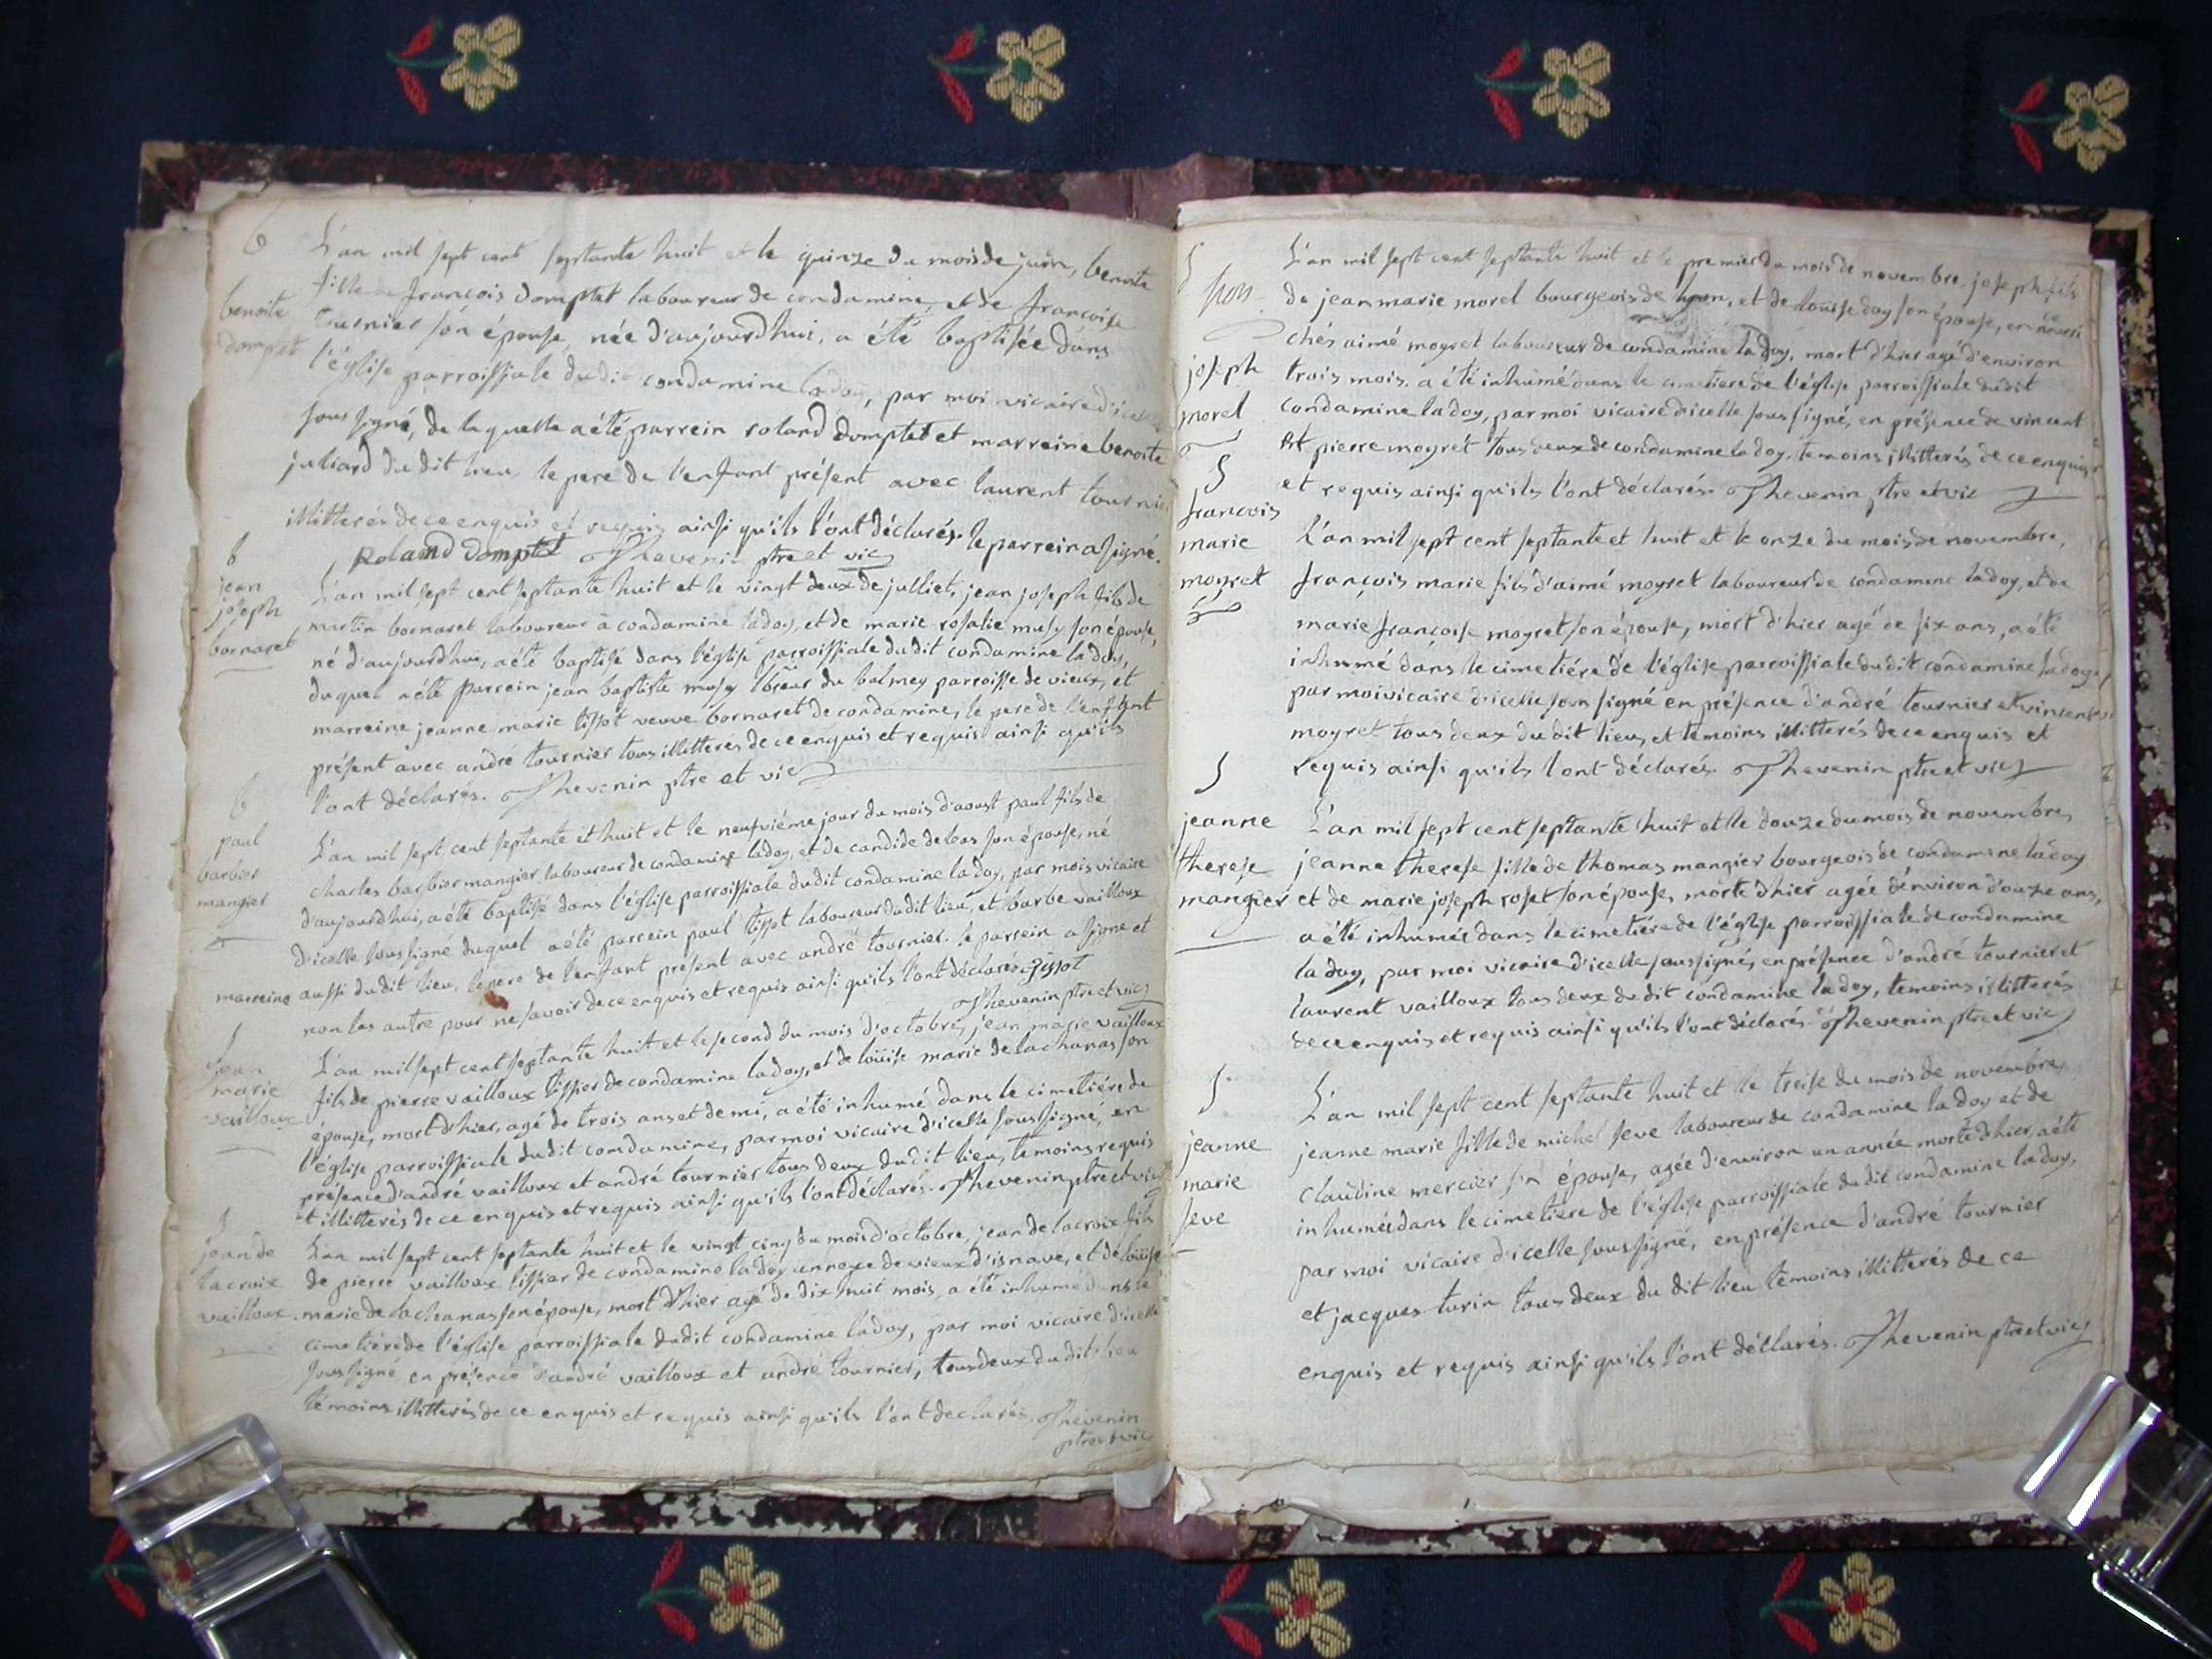 6
L'an mil sept cent septante huit et le quinze du mois de juin, benoite
benoite
fille de françois domptet laboureur de condamine, et de françoise
dompet
tournier son épouse, née d'aujourdhui, a été baptisée dans
l'église parroissiale dudit condamine ladoy, par moi vicaire d'icelle
soussigné, de laquelle a été parrein roland domptet et marreine benoite
juliard du dit lieu le pere de l'enfant présent avec laurent tournier
illitterés de ce enquis et requis ainsi qu'ils l'ont déclarés. le parrein a signé.
Roland domptet Thevenin ptre et vic
b
jean
joseph
bornaret
L'an mil sept cent septante huit et le vingt deux de julliet, jean joseph fils de
martin bornaret laboureur à condamine ladoy, et de marie rosalie musy son épouse,
né d'aujourdhui, a été baptisé dans l'église parroissiale dudit condamine ladoy,
duquel a été parrein jean baptiste musy lbreur du balmey parroisse de vieux, et
marreine jeanne marie tissot veuve bornaret de condamine, le pere de l'enfant
présent avec andré tournier tous illitterés de ce enquis et requis ainsi qu'ils
l'ont déclarés. Thevenin ptre et vic
b
paul
barbier
mangier
L'an mil sept cent septante et huit et le neufviéme jour du mois d'aoust paul fils de
charles barbier mangier laboureur de condamine ladoy, et de candide deleas son épouse, né
d'aujourdhui, a été baptisé dans l'église parroissiale dudit condamine ladoy, par mois vicaire
d'icelle soussigné duquel a été parrein paul tissot laboureur dudit lieu, et barbe vailloux
marreine aussi dudit lieu, le pere de l'enfant présent avec andré tournier. le parrein a signe et
non les autre pour ne savoir de ce enquis et requis ainsi qu'ils l'ont déclarés Tissot
Thevenin ptre et vic
S
jean
marie
vailloux
L'an mil sept cent septante huit et le second du mois d'octobre, jean marie vailloux
fils de pierre vailloux tissier de condamine ladoy, et de loüise marie de lachanas son
épouse, mort d'hier, agé de trois ans et demi, a été inhumé dans le cimetiére de
l'église parroissiale dudit condamine, par moi vicaire d'icelle soussigné, en
présence d'andré vailloux et andré tournier tous deux dudit lieu, temoins requis
et illitterés de ce enquis et requis ainsi qu'ils l'ont déclarés. Thevenin ptre et vic
S
jean de
lacroix
vailloux
L'an mil sept cent septante huit et le vingt cinq du mois d'octobre, jean de lacroix fils
de pierre vailloux tissier de condamine ladoy annexe de vieux d'isnave, et de loüise
marie de lachanas son épouse, mort d'hier agé de dix huit mois, a été inhumé dans le
cimetiére de l'église parroissiale dudit condamine ladoy, par moi vicaire d'icelle
soussigné en présence d'andré vailloux et andré tournier, tous deux dudit lieu
témoins illitterés de ce enquis et requis ainsi qu'ils l'ont declarés. Thevenin
ptre et vic
S
joseph
morel
L'an mil sept cent septante huit et le premier du mois de novembre, joseph fils
de jean marie morel bourgeois de lyon, et de loüise day son épouse, en nourri
ce
chés aimé moyret laboureur de condamine ladoy, mort d'hier agé d'environ
trois mois. a été inhumé dans le cimetiere de l'église parroissiale dudit
condamine ladoy, par moi vicaire d'icelle soussigné, en présence de vincent
et pierre moyret tous deux de condamine ladoy, temoins illitterés de ce enquis
et requis ainsi qu'ils l'ont déclarés. Thevenin ptre et vic
S
francois
marie
moyret
L'an mil sept cent septante et huit et le onze du mois de novembre,
françois marie fils d'aimé moyret laboureur de condamine ladoy, et de
marie françoise moyret son épouse, mort d'hier agé de six ans, a été
inhumé dans le cimetiére de l'église parroissiale dudit condamine ladoy
par moi vicaire d'icelle soussigné en présence d'andré tournier et vincent
moyret tous deux dudit lieu, et temoins illitterés de ce enquis et
requis ainsi qu'ils l'ont déclarés. Thevenin ptre et vic
S
jeanne
therese
mangier
L'an mil sept cent septante huit et le douze du mois de novembre,
jeanne therese fille de thomas mangier bourgeois de condamine ladoy
et de marie joseph roset son épouse, morte d'hier agée d'environ d'ouze ans,
a été inhumée dans le cimetiére de l'église parroissiale de condamine
ladoy, par moi vicaire d'icelle soussigné, en présence d'andré tournier et
laurent vailloux tous deux dudit condamine ladoy, temoins illitterés
de ce enquis et requis ainsi qu'ils l'ont déclarés. Thevenin ptre et vic
S
jeanne
marie
seve
L'an mil sept cent septante huit et le treise du mois de novembre,
jeanne marie fille de michel seve laboureur de condamine ladoy et de
claudine mercier son épouse, agée d'environ un année morte d'hier, a été
inhumée dans le cimetiere de l'église parroissiale dudit condamine ladoy,
par moi vicaire d'icelle soussigné, en présence d'andré tournier
et jacques turin tous deux du dit lieu témoins illitterés de ce
enquis et requis ainsi qu'ils l'ont déclarés. Thevenin ptre et vic